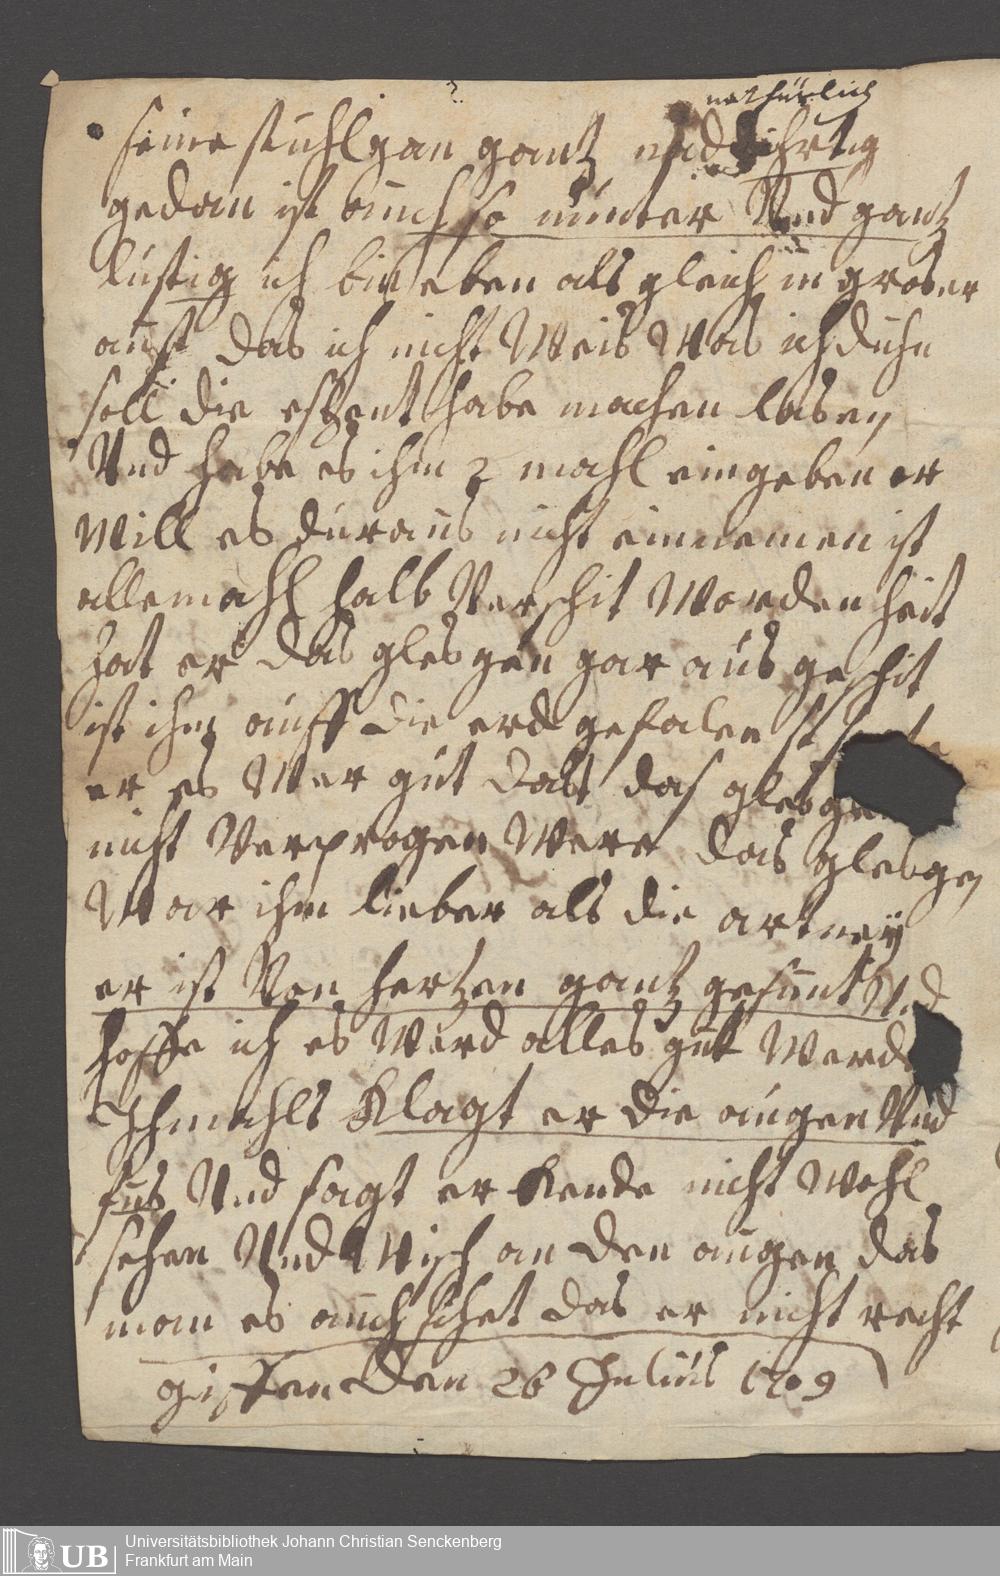 nathürlich
seine stuhlgan gantz und
gedan ist auch so munter Und gantz
lustig ich bin eben als gleich in groser
angst das ich nicht Weis Was ich duhn
soll die eszent habe machen lasen
Und habe es ihm 2 mahl eingeben er
Will es duraus nicht einnemen ist
allemahl halb Verschit Worden heit
hat er das glesgen gar aus geschit
ist ihm auff die erd gefalen
er es Wer gut das das glesgen
nicht Verprogen Were das glesgen
War ihm lieber als die artney
er ist Von hertzen gantz gesunt Und
hoffe ich es Werd alles gut Werde
Klagt er die augen Und
fus Und sagt er Kende nicht Wohl
sehen Und Wisch an den augen das
man es auch sihet das er nicht recht
gissen den 26 Julius 1709
UB Universitätsbibliothek Johann Christian Senckenberg
Frankfurt am Main